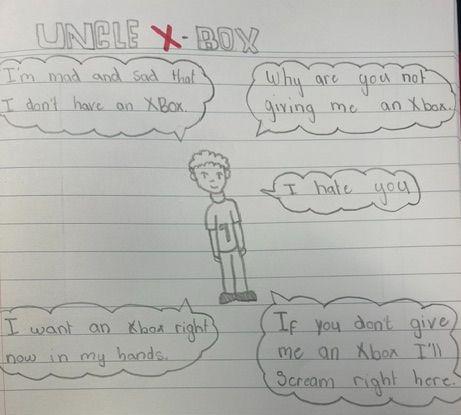 UNCLE X-BOX
I'm mad and sad that
I don't have an XBox.
Why are you not
giving me an Xbox.
I hate you
1
I want an Xbox right
now in my hands.
If you don't give
me an Xbox I'll
Scream right here.